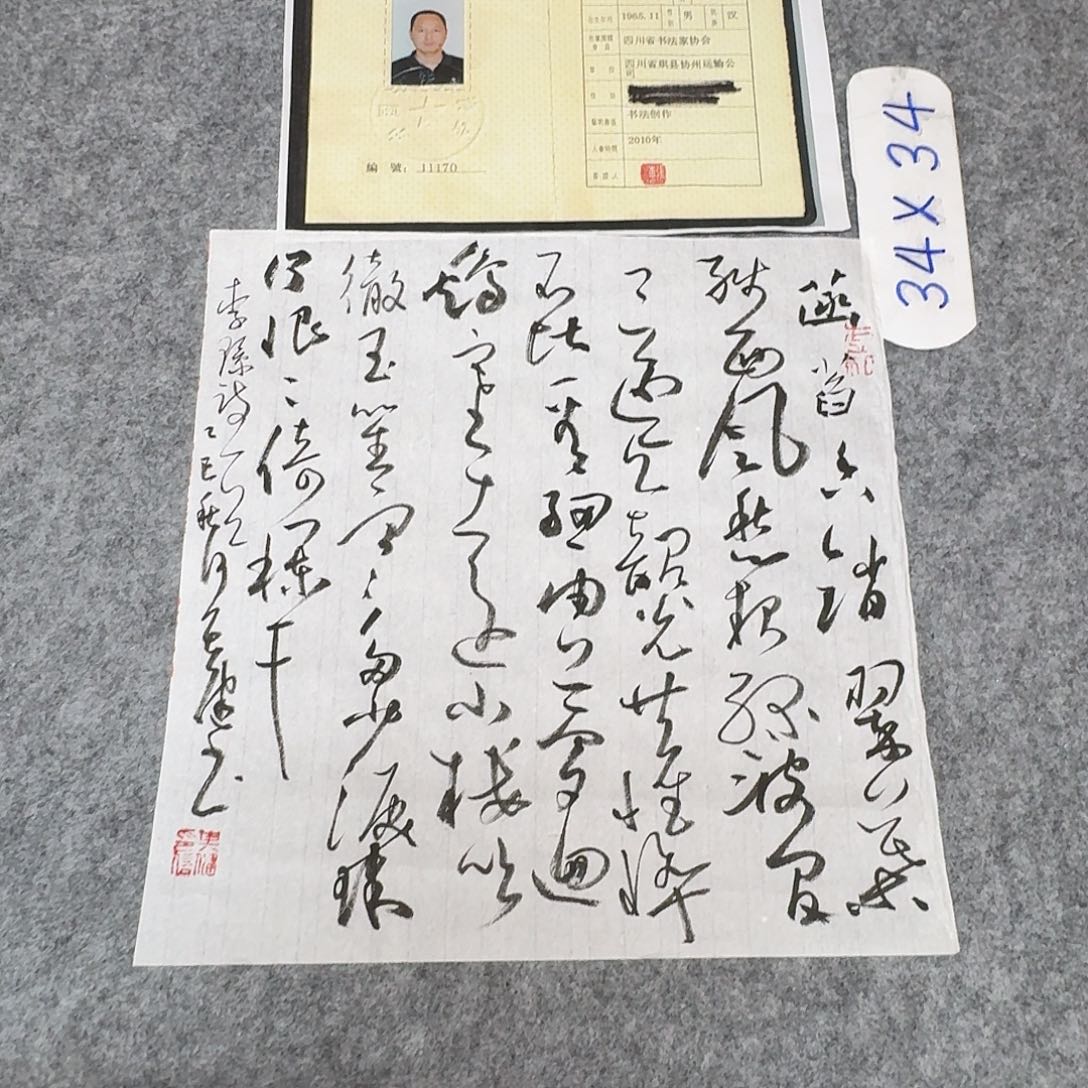 出生年月 1965.11 性别 男 民族 汉
四川省书法家协会
四川省珙县协州运输公司
书法创作
入会时间 2010年
編號：11170
34X34
菡萏香銷翠葉
残西風愁起綠波間
還与韶光共憔悴
不堪看細雨夢迴
鷄塞遠小樓吹
徹玉笙寒多少淚珠
何限恨倚欄干
李璟詩一首乙巳秋月